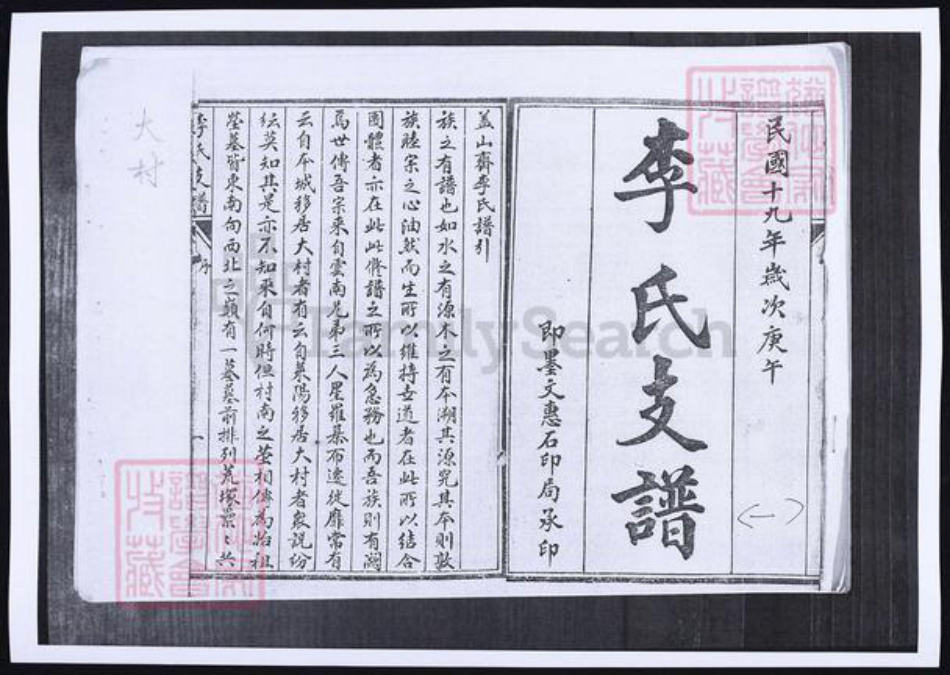 民國十九年歲次庚午
李氏支譜
即墨文惠石印局承印
(一)
蓋山齋李氏譜引
族之有譜也如水之有源木之有本溯其源究其本則敦
族睦宗之心油然而生所以維持世道者在此所以結合
團體者亦在此此修譜之所以為急務也而吾族則有闕
焉世傳吾宗來自雲南兄弟三人星羅棊布遷徙靡常有
云自本城移居大村者有云自萊陽移居大村者眾說紛
紜莫知其是亦不知來自何時但村南之塋相傳為始祖
塋墓皆東南向而西北之嶺有一墓墓前排列荒塚纍〻共
李氏支譜 序 一
大村
FamilySearch